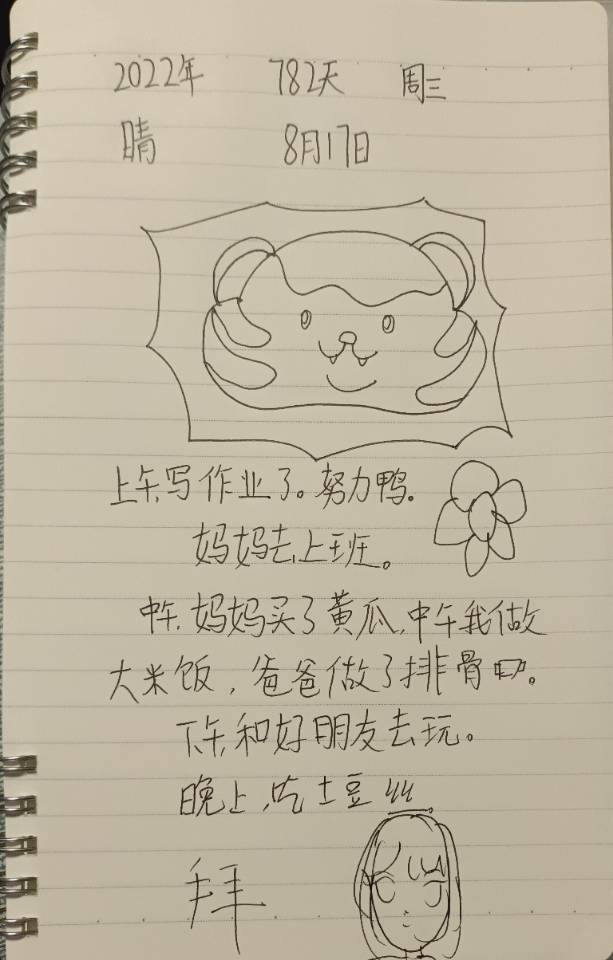 2022年 782天 周三
晴 8月17日
上午,写作业了。努力鸭.
妈妈去上班。
中午,妈妈买了黄瓜,中午我做
大米饭,爸爸做了排骨。
下午,和好朋友去玩。
晚上,吃土豆丝。
拜